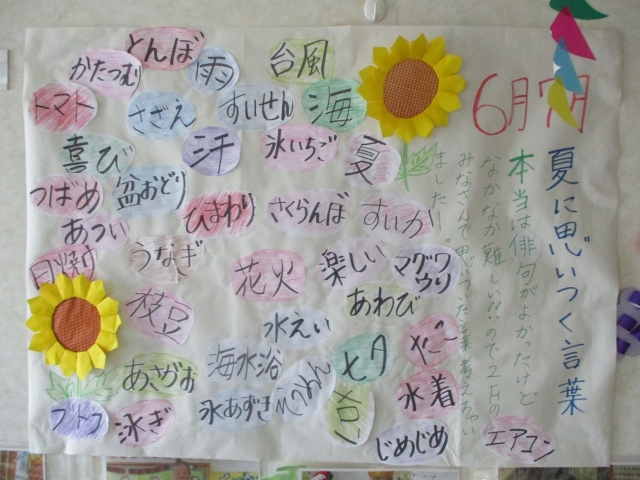 6月7月
夏に思いつく言葉
本当は俳句がよかったけど
なかなか難しい!?ので2Fの
みなさんで思いついた言葉考えちゃい
ました!!
とんぼ
かたつむり
雨
台風
トマト
さざえ
すいせん
海
喜び
汗
氷いちご
夏
つばめ
盆おどり
ひまわり
さくらんぼ
すいか
あつい
日焼け
うなぎ
花火
楽しい
マグワ
ウリ
枝豆
あわび
水えい
たこ
あさがお
海水浴
七夕
水着
ブドウ
泳ぎ
氷あずき
メロン
じめじめ
エアコン